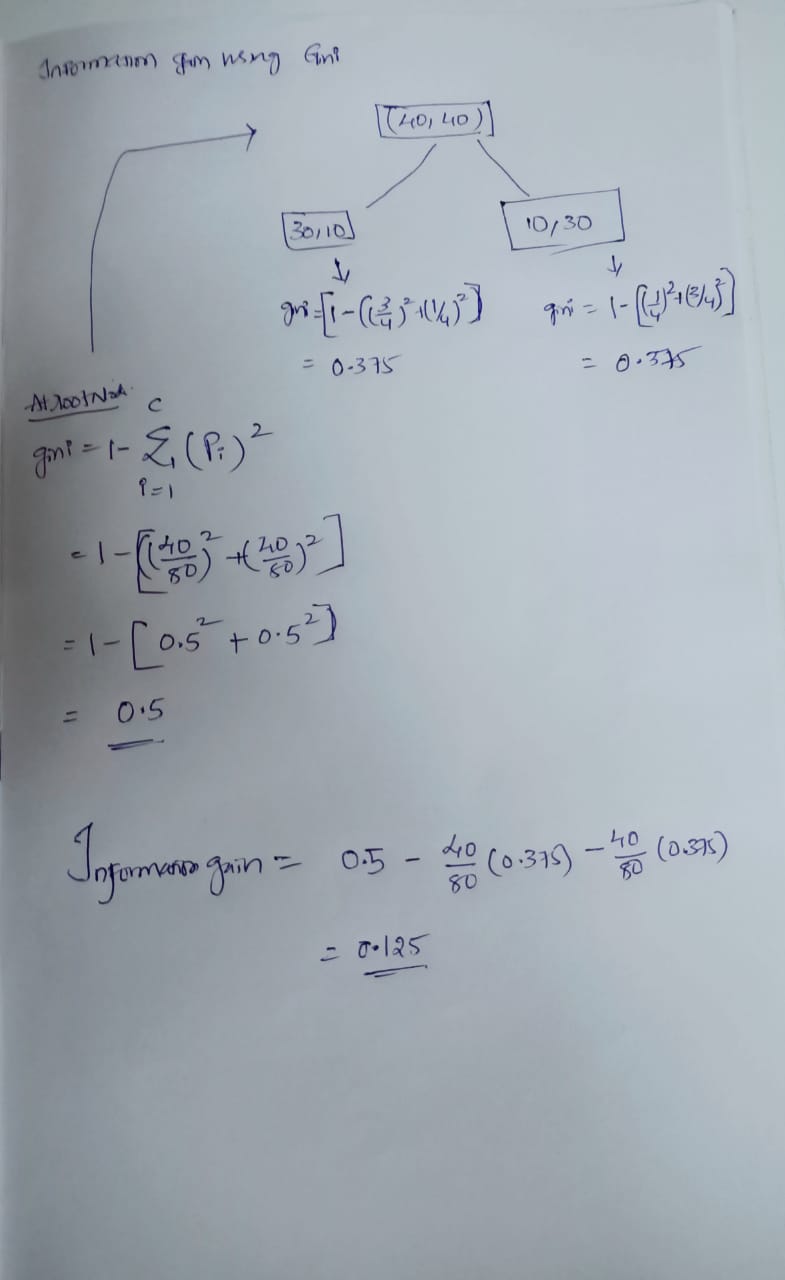 Information gain using Gini
[(40,40)]
30,10
10,30
gini = [1-((3/4)²+(1/4)²)]
= 0.375
gini = 1-[(1/4)²+(3/4)²]
= 0.375
At root Node.
gini = 1- Σ_{i=1}^{c} (Pi)²
= 1-[(40/80)²+(40/80)²]
= 1-[0.5²+0.5²]
= 0.5
Information gain = 0.5 - 40/80 (0.375) - 40/80 (0.375)
= 0.125